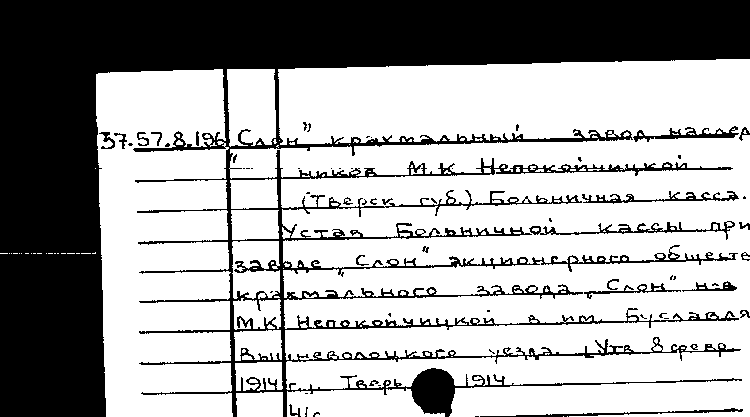 37.57.8.196 „Слон", крахмальный завод наслед
ников М.К. Непокойчицкой
(Тверск. губ.). Больничная касса.
Устав Больничной кассы при
заводе „Слон" акционерного обществ
крахмального завода „Слон" н-в
М.К. Непокойчицкой в им. Буславля
Вышневолоцкого уезда. [Утв 8 февр
1914 г.]. Тверь, 1914.
41с